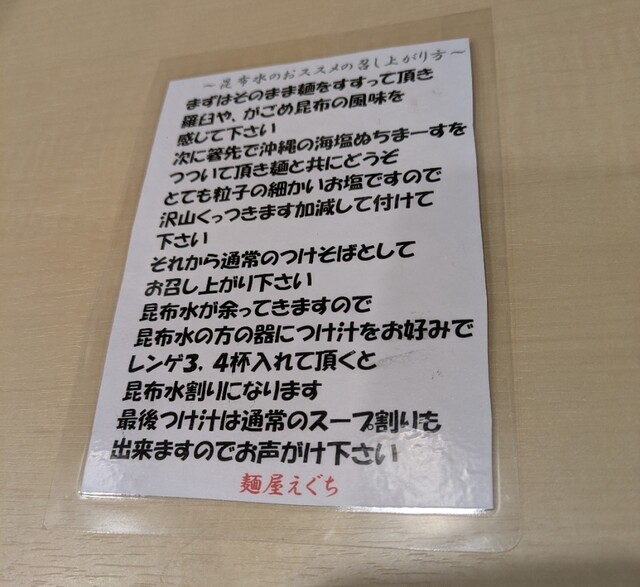 ～昆布水のおススメの召し上がり方～
まずはそのまま麺をすすって頂き
羅臼や、がごめ昆布の風味を
感じて下さい
次に箸先で沖縄の海塩ぬちまーすを
つついて頂き麺と共にどうぞ
とても粒子の細かいお塩ですので
沢山くっつきます加減して付けて
下さい
それから通常のつけそばとして
お召し上がり下さい
昆布水が余ってきますので
昆布水の方の器につけ汁をお好みで
レンゲ3，4杯入れて頂くと
昆布水割りになります
最後つけ汁は通常のスープ割りも
出来ますのでお声がけ下さい
麺屋えぐち